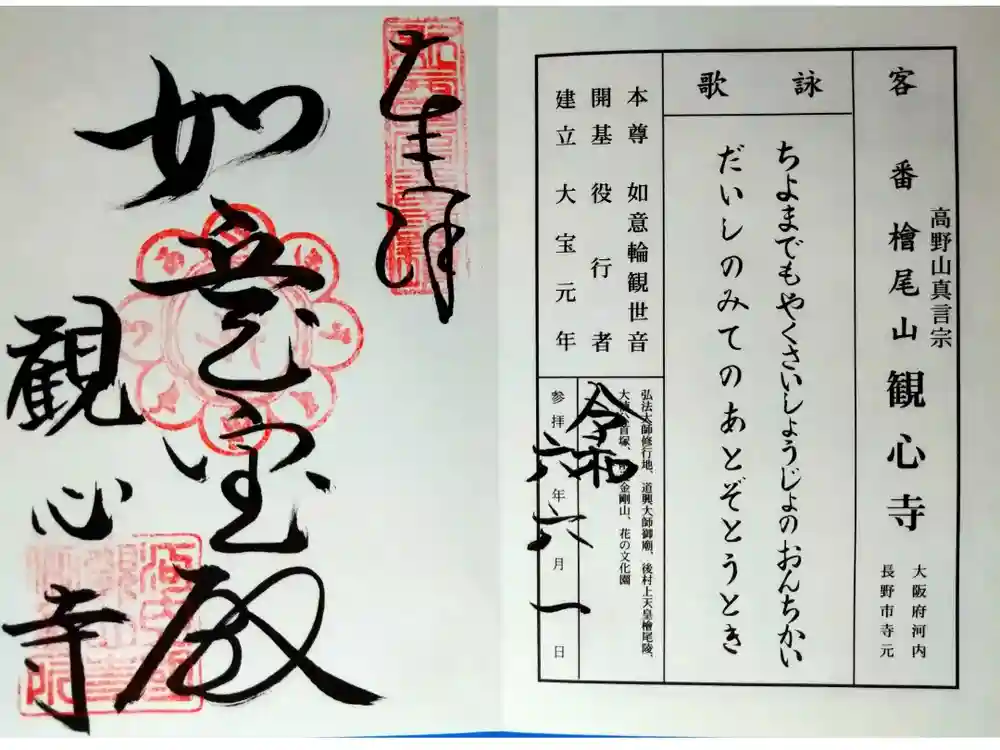 高野山真言宗
客番 檜尾山 観心寺
大阪府河内
長野市寺元
詠歌
ちよまでもやくさいしょうじょのおんちかい
だいしのみてのあとぞとうとき
本尊 如意輪観世音
開基 役行者
建立 大宝元年
弘法大師修行地、道興大師御廟、後村上天皇檜尾陵、
金剛山、花の文化園
令和
参拝 六年 六月 一日
奉拝
如意宝殿
観心寺